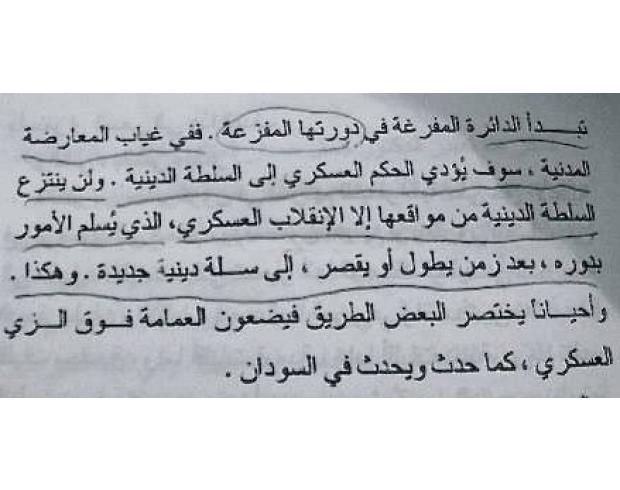 تبـــدأ الدائرة المفرغة في دورتها المفزعة . ففي غياب المعارضة
المدنية ، سوف يُؤدي الحكم العسكري إلى السلطة الدينية . ولن ينتزع
السلطة الدينية من مواقعها إلا الإنقلاب العسكري، الذي يُسلم الأمور
بدوره ، بعد زمن يطول أو يقصر ، إلى سلة دينية جديدة . وهكذا .
وأحياناً يختصر البعض الطريق فيضعون العمامة فـوق الـزي
العسكري ، كما حدث ويحدث في السودان .